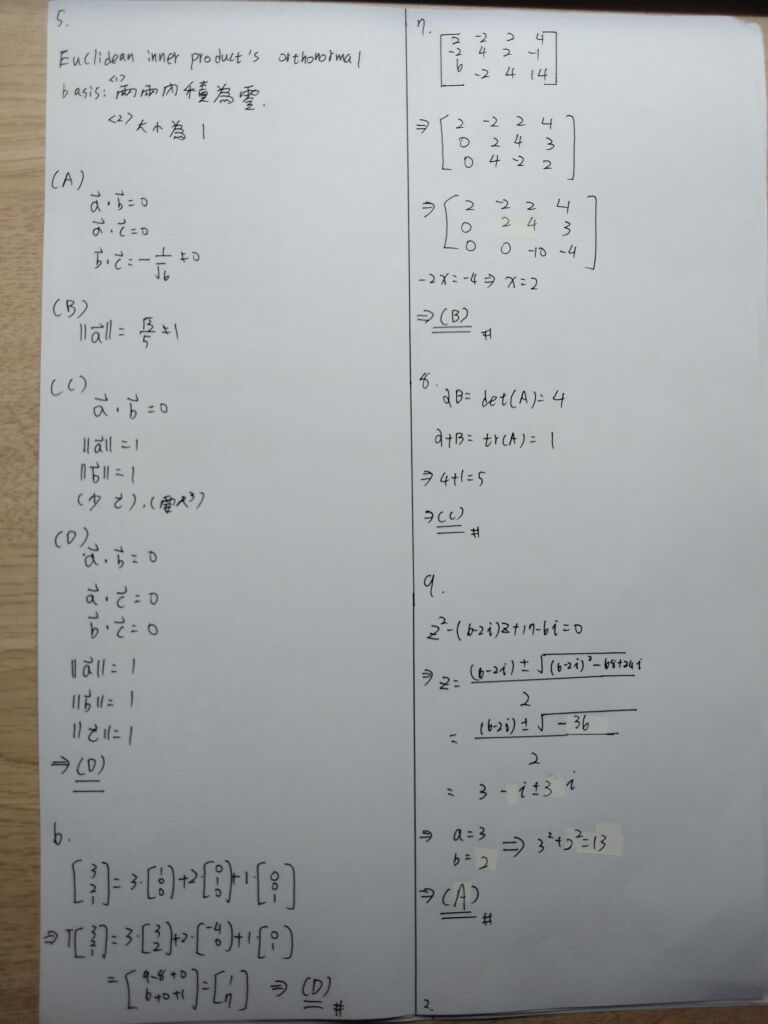 5.
Euclidean inner product's orthonormal
basis: <1> 兩兩內積為零.
<2> 大小為 1
(A)
a⃗·b⃗=0
a⃗·c⃗=0
b⃗·c⃗=-1/√6≠0
(B)
||a⃗||= √13/5 ≠1
(C)
a⃗·b⃗=0
||a⃗||=1
||b⃗||=1
(少 c⃗).(需R³)
(D)
a⃗·b⃗=0
a⃗·c⃗=0
b⃗·c⃗=0
||a⃗||=1
||b⃗||=1
||c⃗||=1
⇒(D)
6.
[3 2 1]=3·[1 0 0]+2[0 1 0]+1·[0 0 1]
⇒T[3 2 1]=3·[3 2]+2·[-4 0]+1[0 1]
=[9-8+0 6+0+1]=[1 7] ⇒ (D) #
7.
2 -2 2 4
-2 4 2 -1
6 -2 4 14
⇒ 2 -2 2 4
0 2 4 3
0 4 -2 2
⇒ 2 -2 2 4
0 2 4 3
0 0 -10 -4
-2x=-4⇒x=2
⇒(B) #
8.
2B=det(A)=4
2+B=tr(A)=1
⇒4+1=5
⇒(C) #
9.
z²-(6-2i)z+17-6i=0
⇒z=((6-2i)±√((6-2i)²-68+24i))/2
=((6-2i)±√(-36))/2
= 3 - i±3 i
⇒ a=3
b=2 ⇒ 3²+2²=13
⇒(A) #
2.